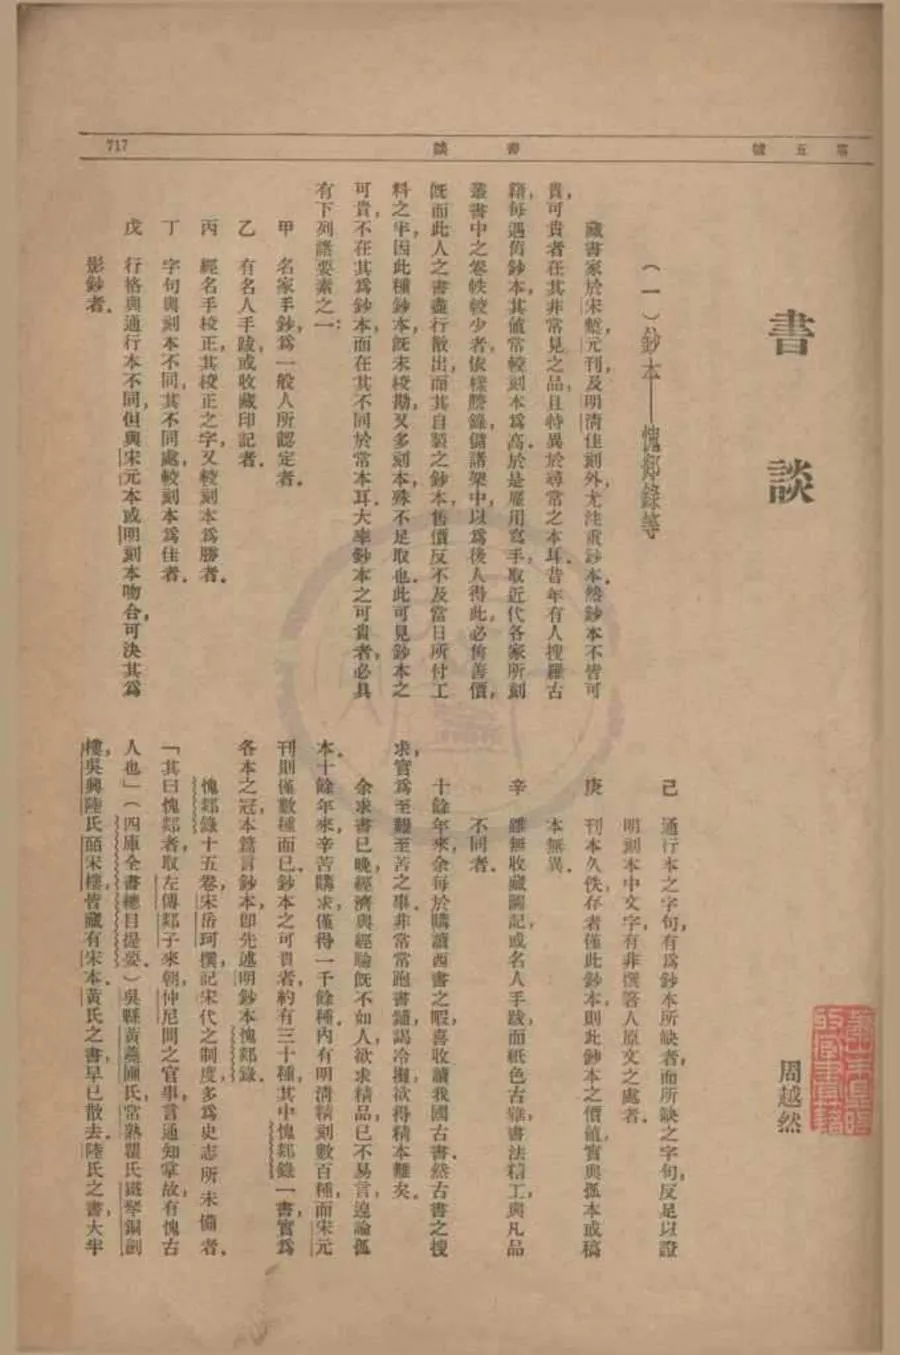 第五號
書談
717
書談
周越然
(一)鈔本——愧郯錄等
藏書家於宋槧,元刊,及明清佳刻外,尤注重鈔本.然鈔本不皆可
貴,可貴者在其非常見之品,且特異於尋常之本耳.昔年有人搜羅古
籍,每遇舊鈔本,其值常較刻本爲高.於是雇用寫手,取近代各家所刻
叢書中之卷帙較少者,依樣謄錄,儲諸架中,以爲後人得此,必售善價,
旣而此人之書盡行散出,而其自製之鈔本,售價反不及當日所付工
料之半,因此種鈔本,旣未校勘,又多刻本,殊不足取也.此可見鈔本之
可貴,不在其爲鈔本,而在其不同於常本耳.大率鈔本之可貴者,必具
有下列諸要素之一:
甲 名家手鈔,爲一般人所認定者.
乙 有名人手跋,或收藏印記者.
丙 經名手校正,其校正之字,又較刻本爲勝者.
丁 字句與刻本不同,其不同處,較刻本爲佳者.
戊 行格與通行本不同,但與宋元本或明刻本吻合,可決其爲
影鈔者.
己 通行本之字句,有爲鈔本所缺者,而所缺之字句,反足以證
明刻本中文字,有非撰箸人原文之處者.
庚 刊本久佚,存者僅此鈔本,則此鈔本之價値,實與孤本或稿
本無異.
辛 雖無收藏圖記,或名人手跋,而紙色古雅,書法精工,與凡品
不同者.
十餘年來,余每於購讀西書之暇,喜收讀我國古書.然古書之搜
求,實爲至難至苦之事.非常常跑書鋪,謁冷攤,欲得精本難矣.
余求書已晚,經濟與經驗旣不如人,欲求精品,已不易言,遑論孤
本.十餘年來,辛苦購求,僅得一千餘種.內有明清精刻數百種,而宋元
刊則僅數種而已.鈔本之可貴者,約有三十種,其中愧郯錄一書,實爲
各本之冠,本篇言鈔本,卽先述明鈔本愧郯錄.
愧郯錄十五卷,宋岳珂撰,記宋代之制度,多爲史志所未備者.
「其曰愧郯者,取左傳郯子來朝,仲尼問之官事,言通知掌故,有愧古
人也」(四庫全書總目提要.)吳縣黃蕘圃氏,常熟瞿氏鐵琴銅劍
樓,吳興陸氏皕宋樓,皆藏有宋本.黃氏之書,早已散去.陸氏之書,大半